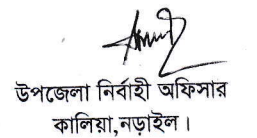 উপজেলা নির্বাহী অফিসার
কালিয়া,নড়াইল।